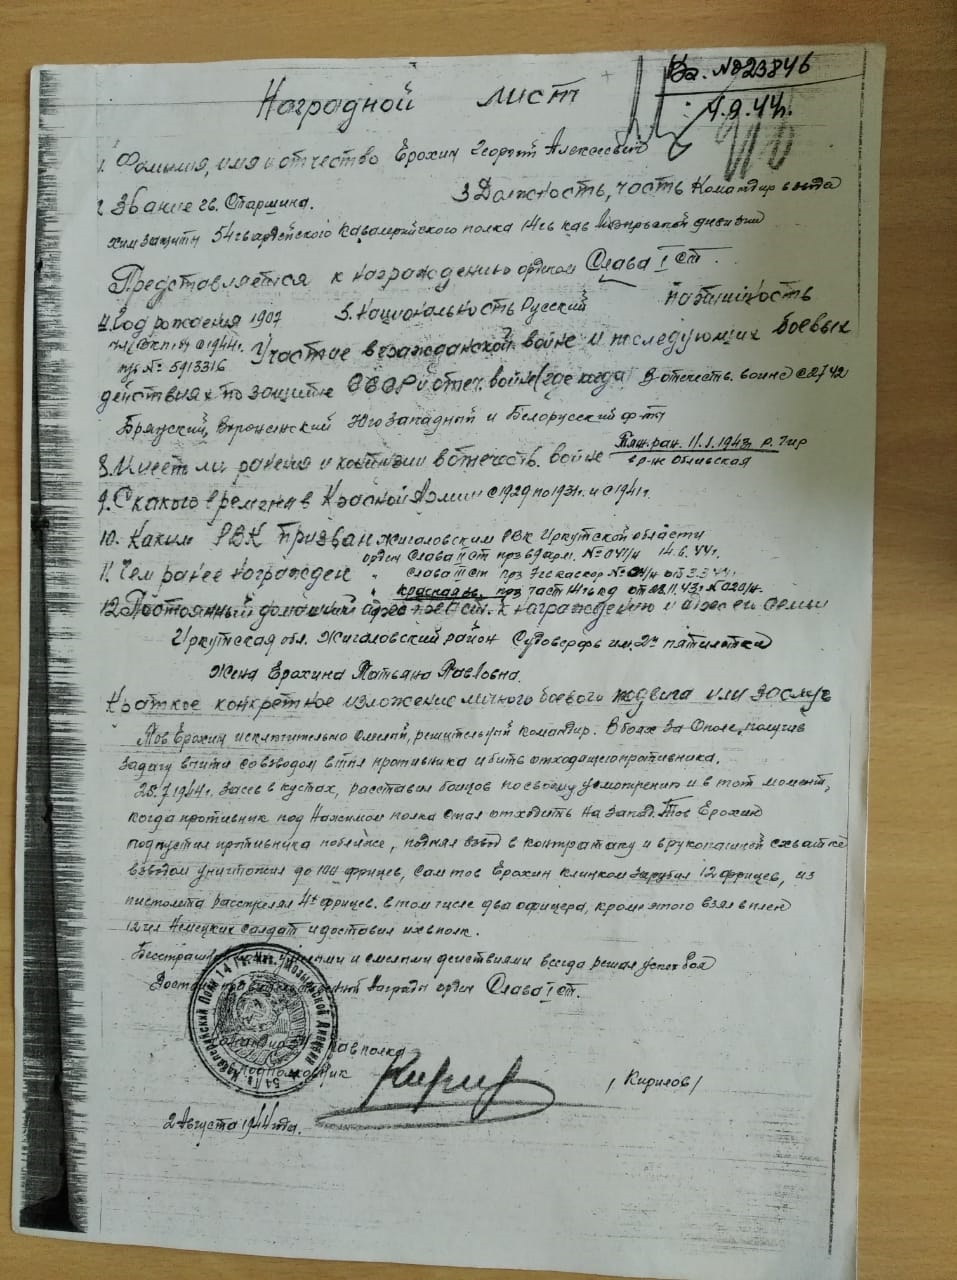 Вх. №023846
4.9.44г.
Наградной лист
1. Фамилия, имя и отчество Ерохин Георгий Алексеевич
2. Звание гв. Старшина. 3 Должность, часть Командир взвода
хим защиты 54 гвардейского Кавалерийского полка 14 гв кав Мозырьской дивизии
Представляется к награждению орденом Слава I ст.
4. Год рождения 1907 5. Национальность Русский партийность
чл/ВКП/б/ с 1944г. Участие в гражданской войне и последующих боевых
п/б №: 5913316
действиях по защите СССР и отеч. войне (где когда) В отечеств. войне с
Брянский, Воронежский Юго Западный и Белорусский ф-ты
8. Имеет ли ранения и контузии в отечеств. войне Тяж. ран. 11.1.1943г р. Чир
р-н Обливская
9. С какого времени в Красной Армии с 1929 по 1931г. и с 1941г.
10. Каким РВК призван Жигаловским РВК Иркутской области
орден Слава II ст пр 14.6.44г.
11. Чем ранее награжден " Слава III ст пр 7 гв кавкор № от 3.3.44г.
" красная зв. пр. част 14 гв кд № 020/н.
12. Постоянный домашний адрес к награждению и адрес его семьи
Иркутская обл. Жигаловский район Судоверфь им. 2й пятилетки
Жена Ерохина Татьяна Павловна.
Краткое конкретное изложение личного боевого подвига или заслуг
Тов Ерохин исключительно смелый, решительный командир. В боях за Ополе, получив
задачу выйти со взводом в тыл противника и бить отходящего противника.
25.7.1944г. Засев в кустах, расставил бойцов по своему усмотрению и в тот момент,
когда противник под нажимом полка стал отходить на Запад. Тов Ерохин
подпустил противника поближе, поднял взвод в контратаку и в рукопашной схватке
взводом уничтожил до 100 фрицев, сам тов Ерохин клинком зарубил 12 фрицев, из
пистолета расстрелял 4х фрицев. в том числе два офицера, кроме этого взял в плен
12 чел Немецких солдат и доставил их в полк.
и смелыми действиями всегда решал успех боя
награды орден Слава I ст.
54 Гв. Кавалерийский Полк 14 Гв. Кав. Мозырьской Дивизии
Командир кавполка
подполковник /Кирилов/
2 Августа 1944 года.